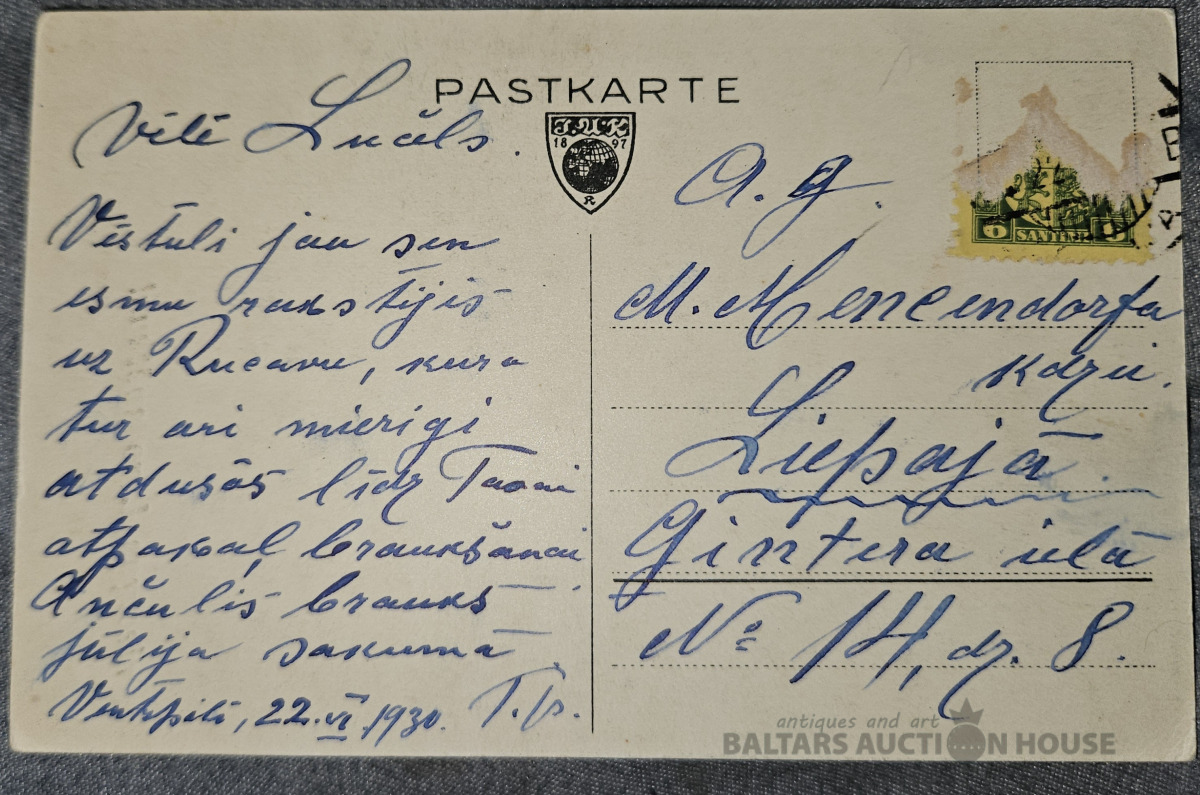 PASTKARTE
18 97
R
Vēstuli jau sen
esmu rakstījis
uz Rucavu, kura
tur ari mierigi
atdusās līdz Tavai
atpakaļ braukšanai
brauks
jūlija sakumā
Ventspilī, 22.VI.1930. T.
A. g.
M. Mencendorfa
kdzei.
Liepajā.
Gintera ielā
№ 14, dz. 8.
6 SANTIMI 6
antiques and art
BALTARS AUCTION HOUSE